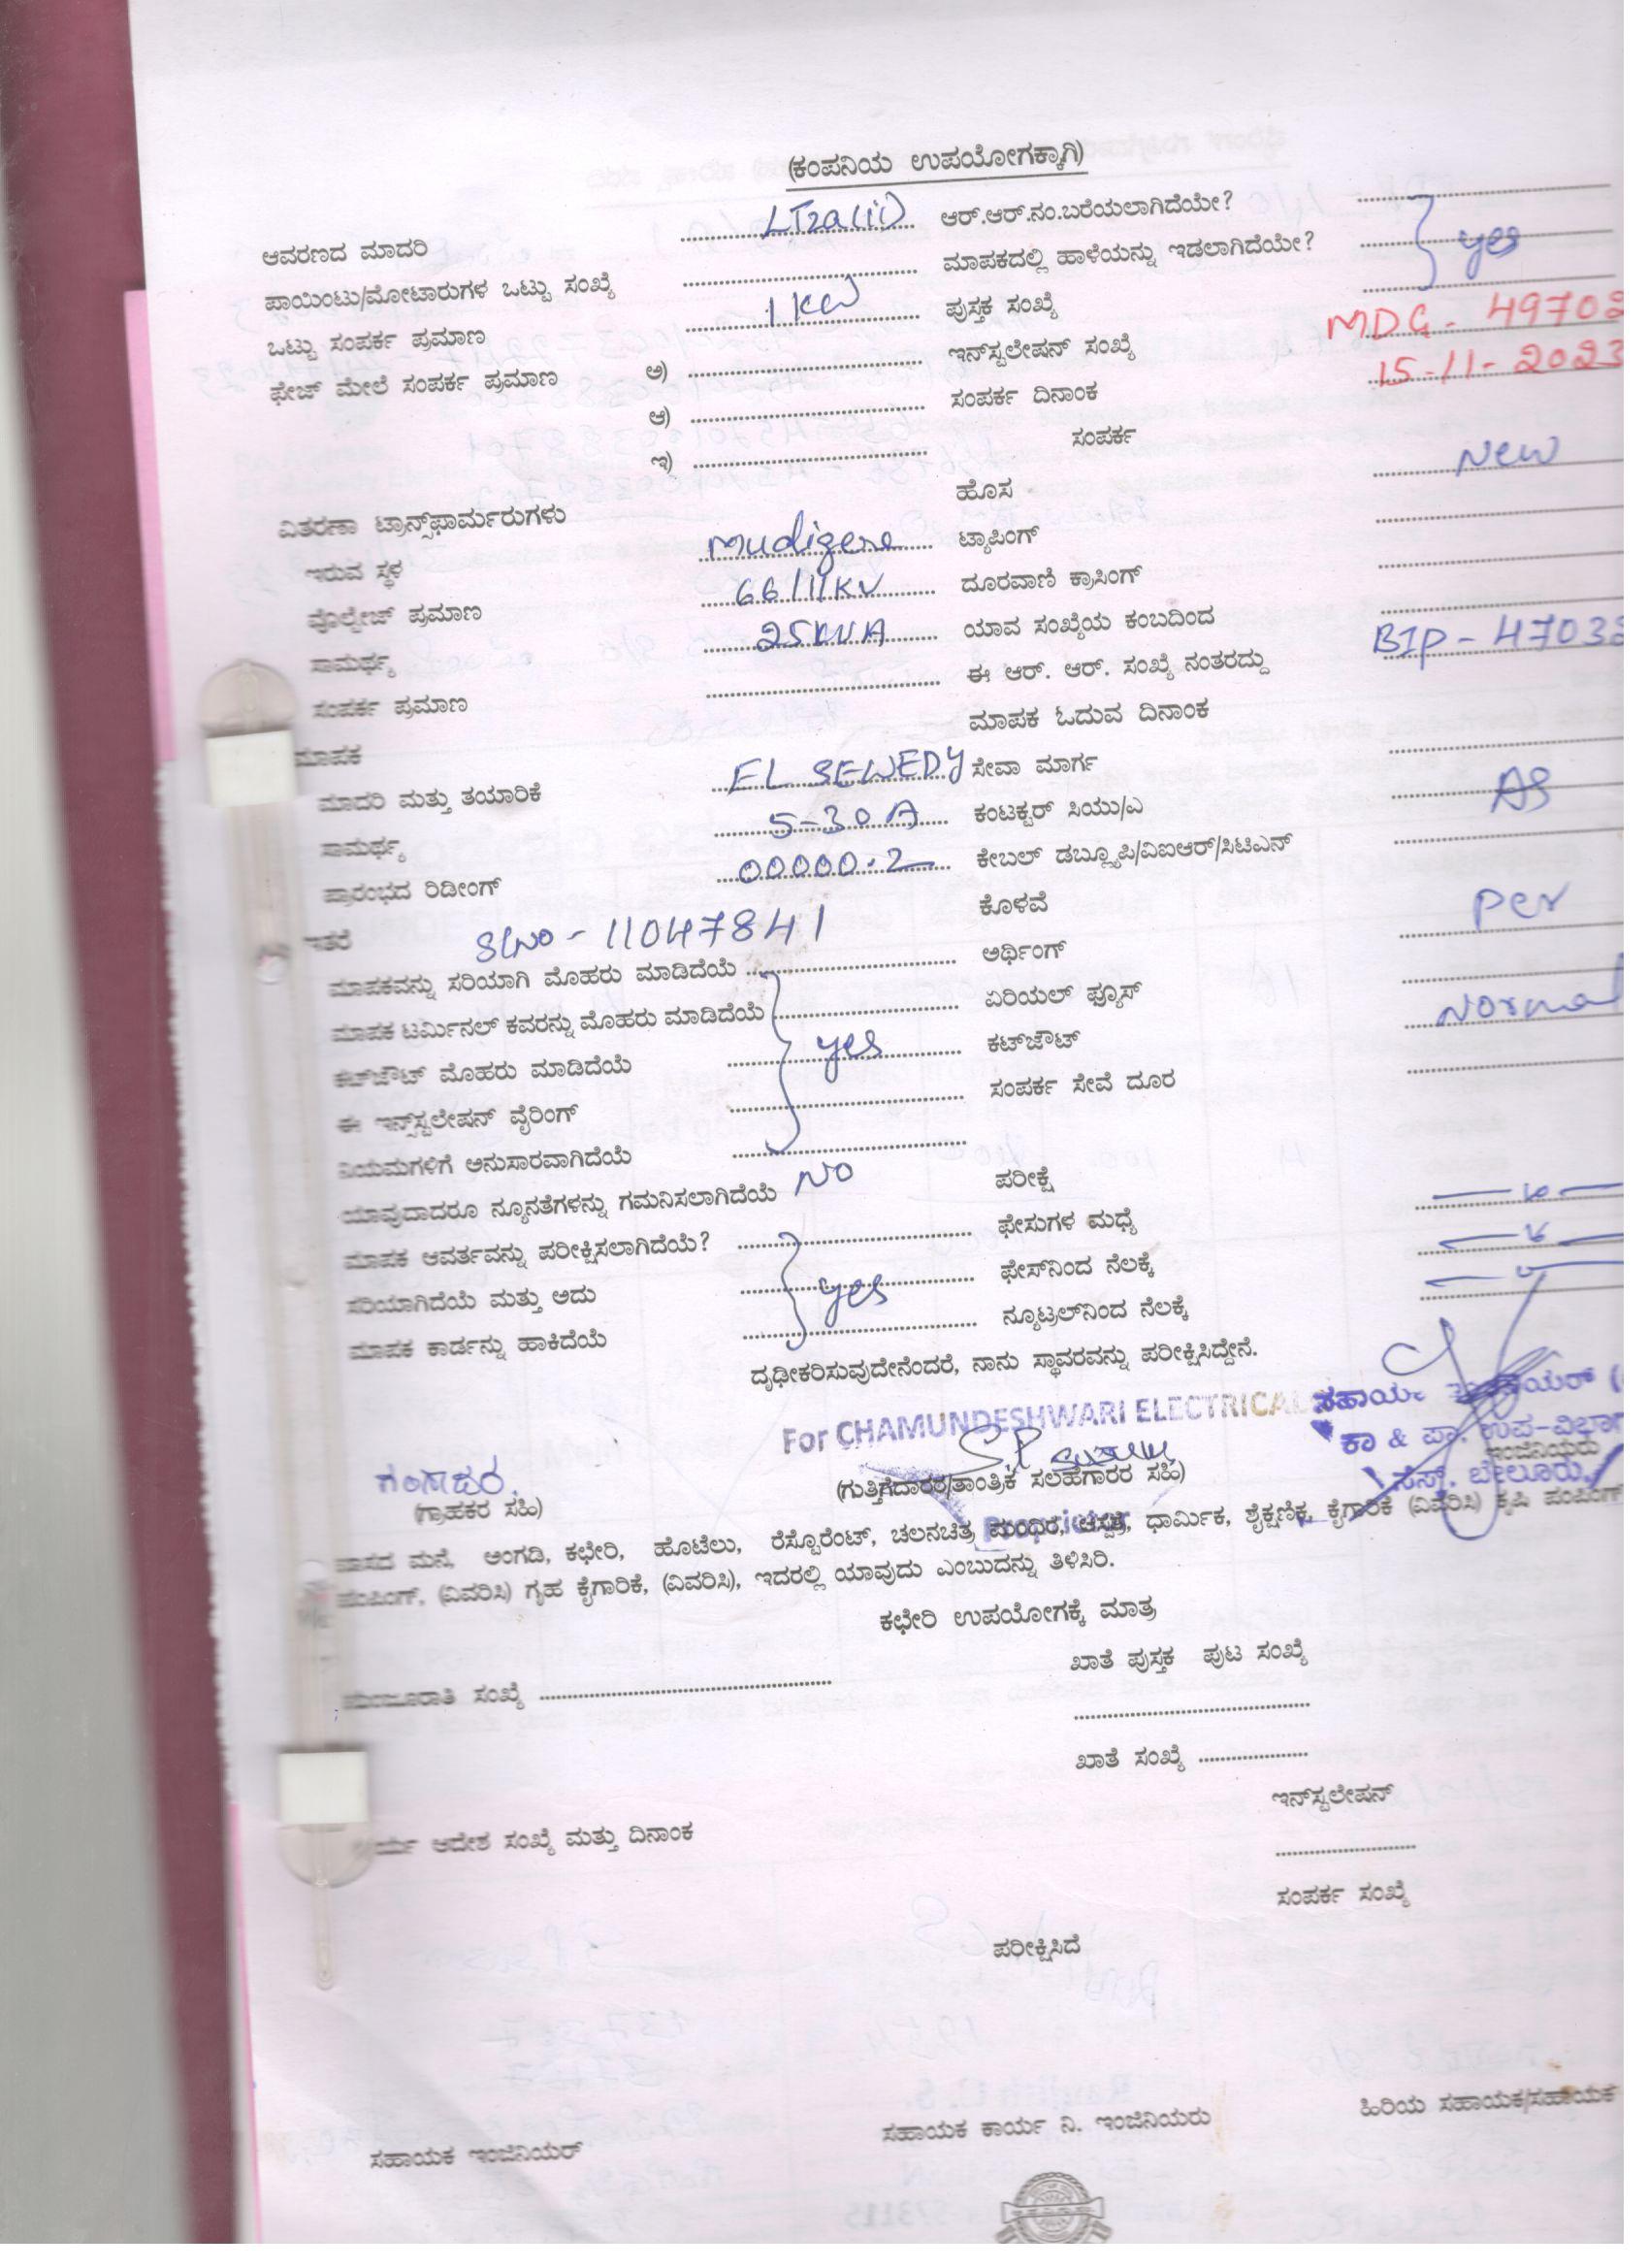 (ಕಂಪನಿಯ ಉಪಯೋಗಕ್ಕಾಗಿ)
ಆವರಣದ ಮಾದರಿ LT2a(ii) ಆರ್.ಆರ್.ನಂ.ಬರೆಯಲಾಗಿದೆಯೇ?
ಪಾಯಿಂಟು/ಮೋಟಾರುಗಳ ಒಟ್ಟು ಸಂಖ್ಯೆ ಮಾಪಕದಲ್ಲಿ ಹಾಳೆಯನ್ನು ಇಡಲಾಗಿದೆಯೇ? yes
ಒಟ್ಟು ಸಂಪರ್ಕ ಪ್ರಮಾಣ 1 KW ಪುಸ್ತಕ ಸಂಖ್ಯೆ
ಫೇಜ್ ಮೇಲೆ ಸಂಪರ್ಕ ಪ್ರಮಾಣ ಅ) ಇನ್‌ಸ್ಟಲೇಷನ್ ಸಂಖ್ಯೆ MDG - 49702
ಆ) ಸಂಪರ್ಕ ದಿನಾಂಕ 15-11-2023
ಇ) ಸಂಪರ್ಕ
ವಿತರಣಾ ಟ್ರಾನ್ಸ್‌ಫಾರ್ಮರುಗಳು ಹೊಸ New
ಇರುವ ಸ್ಥಳ mudigere ಟ್ಯಾಪಿಂಗ್
ವೊಲ್ಟೇಜ್ ಪ್ರಮಾಣ 66/11KV ದೂರವಾಣಿ ಕ್ರಾಸಿಂಗ್
ಸಾಮರ್ಥ್ಯ 25KVA ಯಾವ ಸಂಖ್ಯೆಯ ಕಂಬದಿಂದ
ಸಂಪರ್ಕ ಪ್ರಮಾಣ ಈ ಆರ್. ಆರ್. ಸಂಖ್ಯೆ ನಂತರದ್ದು BIP - 47032
ಮಾಪಕ ಮಾಪಕ ಓದುವ ದಿನಾಂಕ
ಮಾದರಿ ಮತ್ತು ತಯಾರಿಕೆ EL SEWEDY ಸೇವಾ ಮಾರ್ಗ
ಸಾಮರ್ಥ್ಯ 5-30A ಕಂಟಕ್ಟರ್ ಸಿಯು/ಎ As
ಪ್ರಾರಂಭದ ರಿಡೀಂಗ್ 00000.2 ಕೇಬಲ್ ಡಬ್ಲ್ಯೂಪಿ/ವಿಐಆರ್/ಸಿಟಿಎನ್
ಇತರೆ Slno - 11047841 ಕೊಳವೆ per
ಮಾಪಕವನ್ನು ಸರಿಯಾಗಿ ಮೊಹರು ಮಾಡಿದೆಯೆ ಅರ್ಥಿಂಗ್
ಮಾಪಕ ಟರ್ಮಿನಲ್ ಕವರನ್ನು ಮೊಹರು ಮಾಡಿದೆಯೆ ಏರಿಯಲ್ ಫ್ಯೂಸ್ Normal
ಕಟ್‌ಔಟ್ ಮೊಹರು ಮಾಡಿದೆಯೆ yes ಕಟ್‌ಔಟ್
ಈ ಇನ್ಸ್‌ಸ್ಟಲೇಷನ್ ವೈರಿಂಗ್ ಸಂಪರ್ಕ ಸೇವೆ ದೂರ
ನಿಯಮಗಳಿಗೆ ಅನುಸಾರವಾಗಿದೆಯೆ
ಯಾವುದಾದರೂ ನ್ಯೂನತೆಗಳನ್ನು ಗಮನಿಸಲಾಗಿದೆಯೆ NO ಪರೀಕ್ಷೆ
ಮಾಪಕ ಆವರ್ತವನ್ನು ಪರೀಕ್ಷಿಸಲಾಗಿದೆಯೆ? ಫೇಸುಗಳ ಮಧ್ಯೆ
ಸರಿಯಾಗಿದೆಯೆ ಮತ್ತು ಅದು yes ಫೇಸ್‌ನಿಂದ ನೆಲಕ್ಕೆ
ಮಾಪಕ ಕಾರ್ಡನ್ನು ಹಾಕಿದೆಯೆ ನ್ಯೂಟ್ರಲ್‌ನಿಂದ ನೆಲಕ್ಕೆ
ದೃಢೀಕರಿಸುವುದೇನೆಂದರೆ, ನಾನು ಸ್ಥಾವರವನ್ನು ಪರೀಕ್ಷಿಸಿದ್ದೇನೆ.
For CHAMUNDESHWARI ELECTRICAL
ಕಾ & ಪಾ. ಉಪ-ವಿಭಾಗ
ಇಂಜಿನಿಯರು
ಸೆಸ್ಕ್, ಬೇಲೂರು.
ಗಂಗಾಧರ
(ಗ್ರಾಹಕರ ಸಹಿ) (ಗುತ್ತಿಗೆದಾರರ/ತಾಂತ್ರಿಕ ಸಲಹೆಗಾರರ ಸಹಿ)
Proprietor
ವಾಸದ ಮನೆ, ಅಂಗಡಿ, ಕಛೇರಿ, ಹೊಟೆಲು, ರೆಸ್ಟೊರೆಂಟ್, ಚಲನಚಿತ್ರ ಮಂದಿರ, ಆಸ್ಪತ್ರೆ, ಧಾರ್ಮಿಕ, ಶೈಕ್ಷಣಿಕ, ಕೈಗಾರಿಕೆ (ವಿವರಿಸಿ) ಕೃಷಿ ಪಂಪಿಂಗ್
ಪಂಪಿಂಗ್, (ವಿವರಿಸಿ) ಗೃಹ ಕೈಗಾರಿಕೆ, (ವಿವರಿಸಿ), ಇದರಲ್ಲಿ ಯಾವುದು ಎಂಬುದನ್ನು ತಿಳಿಸಿರಿ.
ಕಛೇರಿ ಉಪಯೋಗಕ್ಕೆ ಮಾತ್ರ
ಮಂಜೂರಾತಿ ಸಂಖ್ಯೆ ಖಾತೆ ಪುಸ್ತಕ ಪುಟ ಸಂಖ್ಯೆ
ಖಾತೆ ಸಂಖ್ಯೆ
ಇನ್‌ಸ್ಟಲೇಷನ್
ಆದೇಶ ಸಂಖ್ಯೆ ಮತ್ತು ದಿನಾಂಕ
ಸಂಪರ್ಕ ಸಂಖ್ಯೆ
ಪರೀಕ್ಷಿಸಿದೆ
ಸಹಾಯಕ ಇಂಜಿನಿಯರ್ ಸಹಾಯಕ ಕಾರ್ಯ ನಿ. ಇಂಜಿನಿಯರು ಹಿರಿಯ ಸಹಾಯಕ/ಸಹಾಯಕ